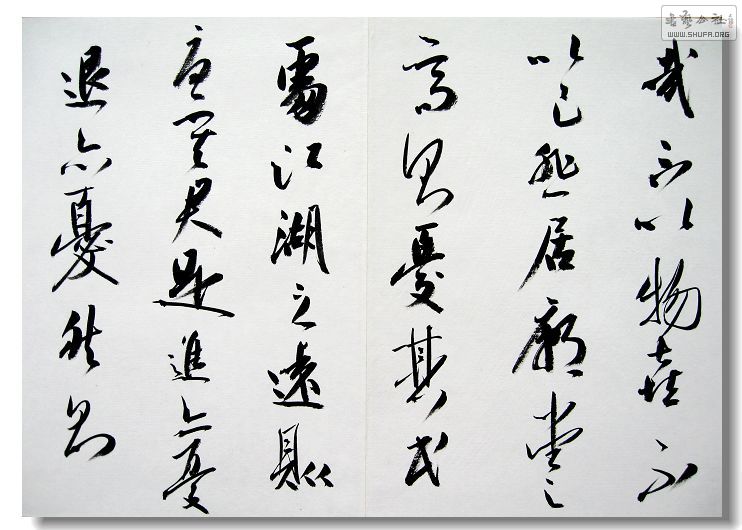 書藝公社
WWW.SHUFA.ORG
哉不以物喜不
以己悲居廟堂之
高則憂其民
處江湖之遠則
憂其君是進亦憂
退亦憂然則